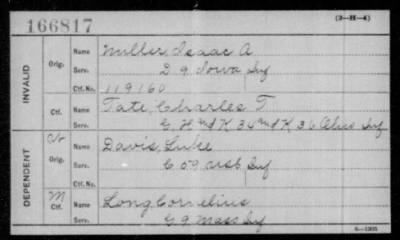 166817
(3-H-4)
INVALID
Orig.
Name Miller, Isaac A
Serv. D 9 Iowa Inf
Ctf. No. 119160
Ctf.
Name Tate, Charles T.
Serv. G, H and K 34 and K 36 Ohio Inf
DEPENDENT
Orig.
Name Davis, Luke
Serv. C 59 USC Inf
Ctf. No.
M
Ctf.
Name Long Cornelius
Serv. G 9 Mass Inf
6-1205